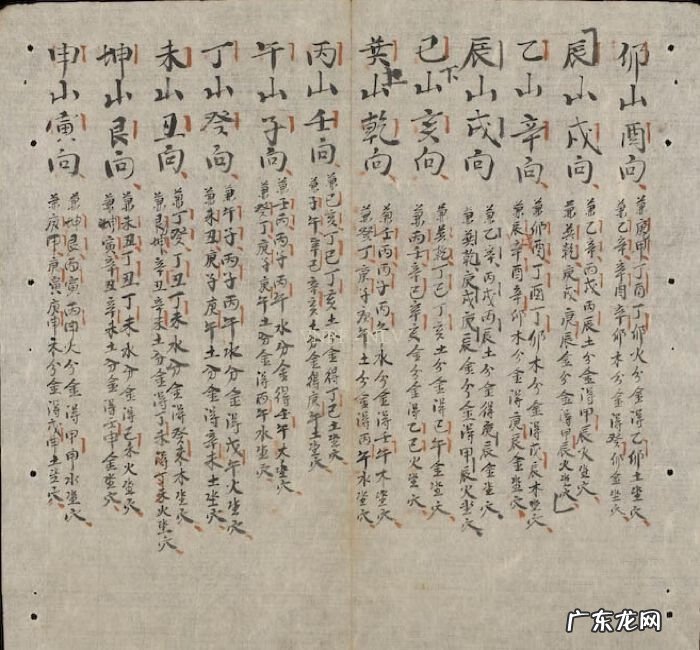 卯山酉向
兼庚甲丁酉丁卯火分金得乙卯土坐穴
兼乙辛辛酉辛卯木分金得癸卯金坐穴
辰山戌向
兼乙辛丙戌丙辰土分金得甲辰火坐穴
兼巽乾庚戌庚辰金分金得甲辰火坐穴
乙山辛向
兼卯酉丁酉丁卯木分金得戊辰木坐穴
兼辰辛酉辛卯木分金得庚辰金坐穴
辰山戌向
兼乙辛丙戌丙辰土分金得庚辰金坐穴
兼巽乾庚戌庚辰金分金得甲辰火坐穴
巳山亥向
下
兼巽乾丁巳丁亥土分金得巳午金坐穴
兼丙壬辛巳辛亥金分金得乙巳火坐穴
巽山乾向
上
兼壬丙丙子丙午水分金得壬午木坐穴
兼癸丁庚子庚午土分金得丙午水坐穴
丙山壬向
兼巳亥丁巳丁亥土分金得丁巳土坐穴
兼子午辛巳辛亥土分金得庚午土坐穴
午山子向
兼壬丙丙子丙午水分金得壬午木坐穴
兼癸丁庚子庚午土分金得丙午水坐穴
丁山癸向
兼午子丙子丙午水分金得戊午火坐穴
兼未丑庚子庚午土分金得辛未土坐穴
未山丑向
兼丁癸丁丑丁未水分金得癸未木坐穴
兼艮坤辛丑辛未土分金得丁未得丁未火坐穴
坤山艮向
兼未丑丁丑丁未水分金得己未火坐穴
兼坤寅辛丑辛未土分金得壬申金坐穴
申山寅向
兼坤艮丙寅丙申火分金得甲申水坐穴
兼庚甲庚寅庚申木分金得戊申土坐穴
广东龙网